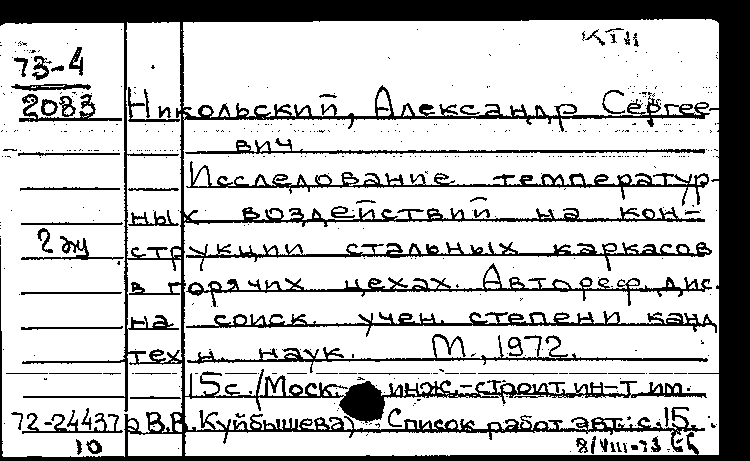 КТН
73-4
2083
Никольский, Александр Сергее-
вич.
Исследование температур-
ных воздействий на кон-
2 эк
струкции стальных каркасов
в горячих цехах. Автореф. дис.
на соиск. учен. степени канд.
техн. наук. М., 1972.
15с. (Моск. инж.-строит. ин-т им.
72-24437 В.В. Куйбышева) Список работ авт.: с. 15.
10 8/VIII-73